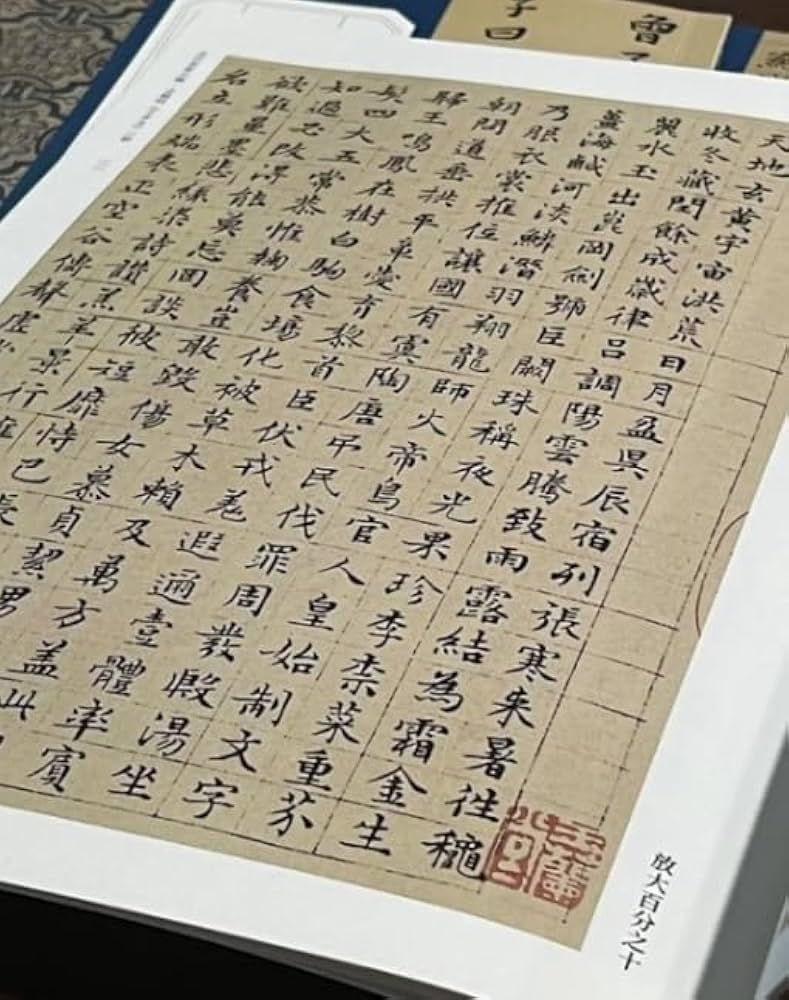 曾
子曰
天地玄黃宇宙洪荒日月盈昃辰宿列張寒来暑往穐
收冬藏閏餘成歲律呂調陽雲騰致雨露結為霜金生
麗水玉出崑岡劍號巨闕珠稱夜光果珍李柰菜重芥
薑海鹹河淡鱗潛羽翔龍師火帝鳥官人皇始制文字
乃服衣裳推位讓國有虞陶唐吊民伐罪周發殷湯坐
朝問道垂拱平章愛育黎首臣伏戎羌遐邇壹體率賓
歸王鳴鳳在樹白駒食場化被草木賴及萬方盖此
髮四大五常恭惟鞠養豈敢毀傷女慕貞絜男
知過必改得能莫忘罔談彼短靡恃己長
欲難量墨悲絲染詩讚羔羊景行維
名立形端表正空谷傳聲虛
放大百分之十